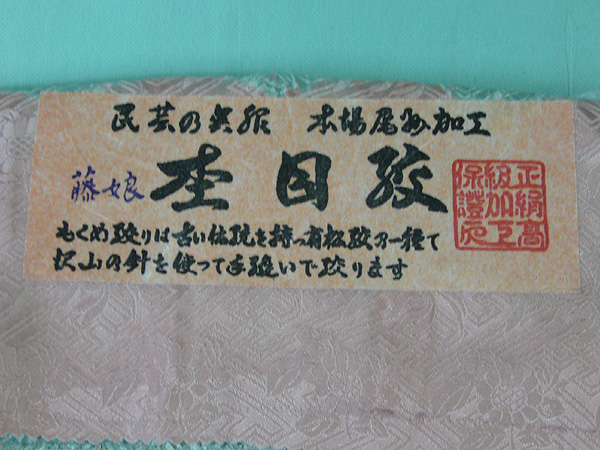 民芸の呉服 本場尾州加工
藤娘 杢目絞
もくめ絞りは古い伝統を持つ有松絞の一種で
沢山の針を使って手縫いで絞ります
正絹高級加工保證応